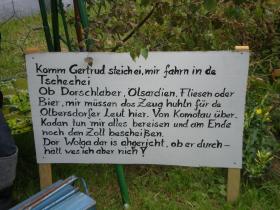 Komm Gertrud steich ei, mir fahrn in de
Tschechei
Ob Dorschlaber, Ölsardien, Fliesen oder
Bier, mir müssen dos Zeug huhln für de
Olbersdorfer Leut hier. Von Komotau über
Kadan tun mir alles bereisen und am Ende
noch den Zoll bescheißen.
Dor Wolga dar is ahgericht, ob er durch-
hält wes ich aber nich!